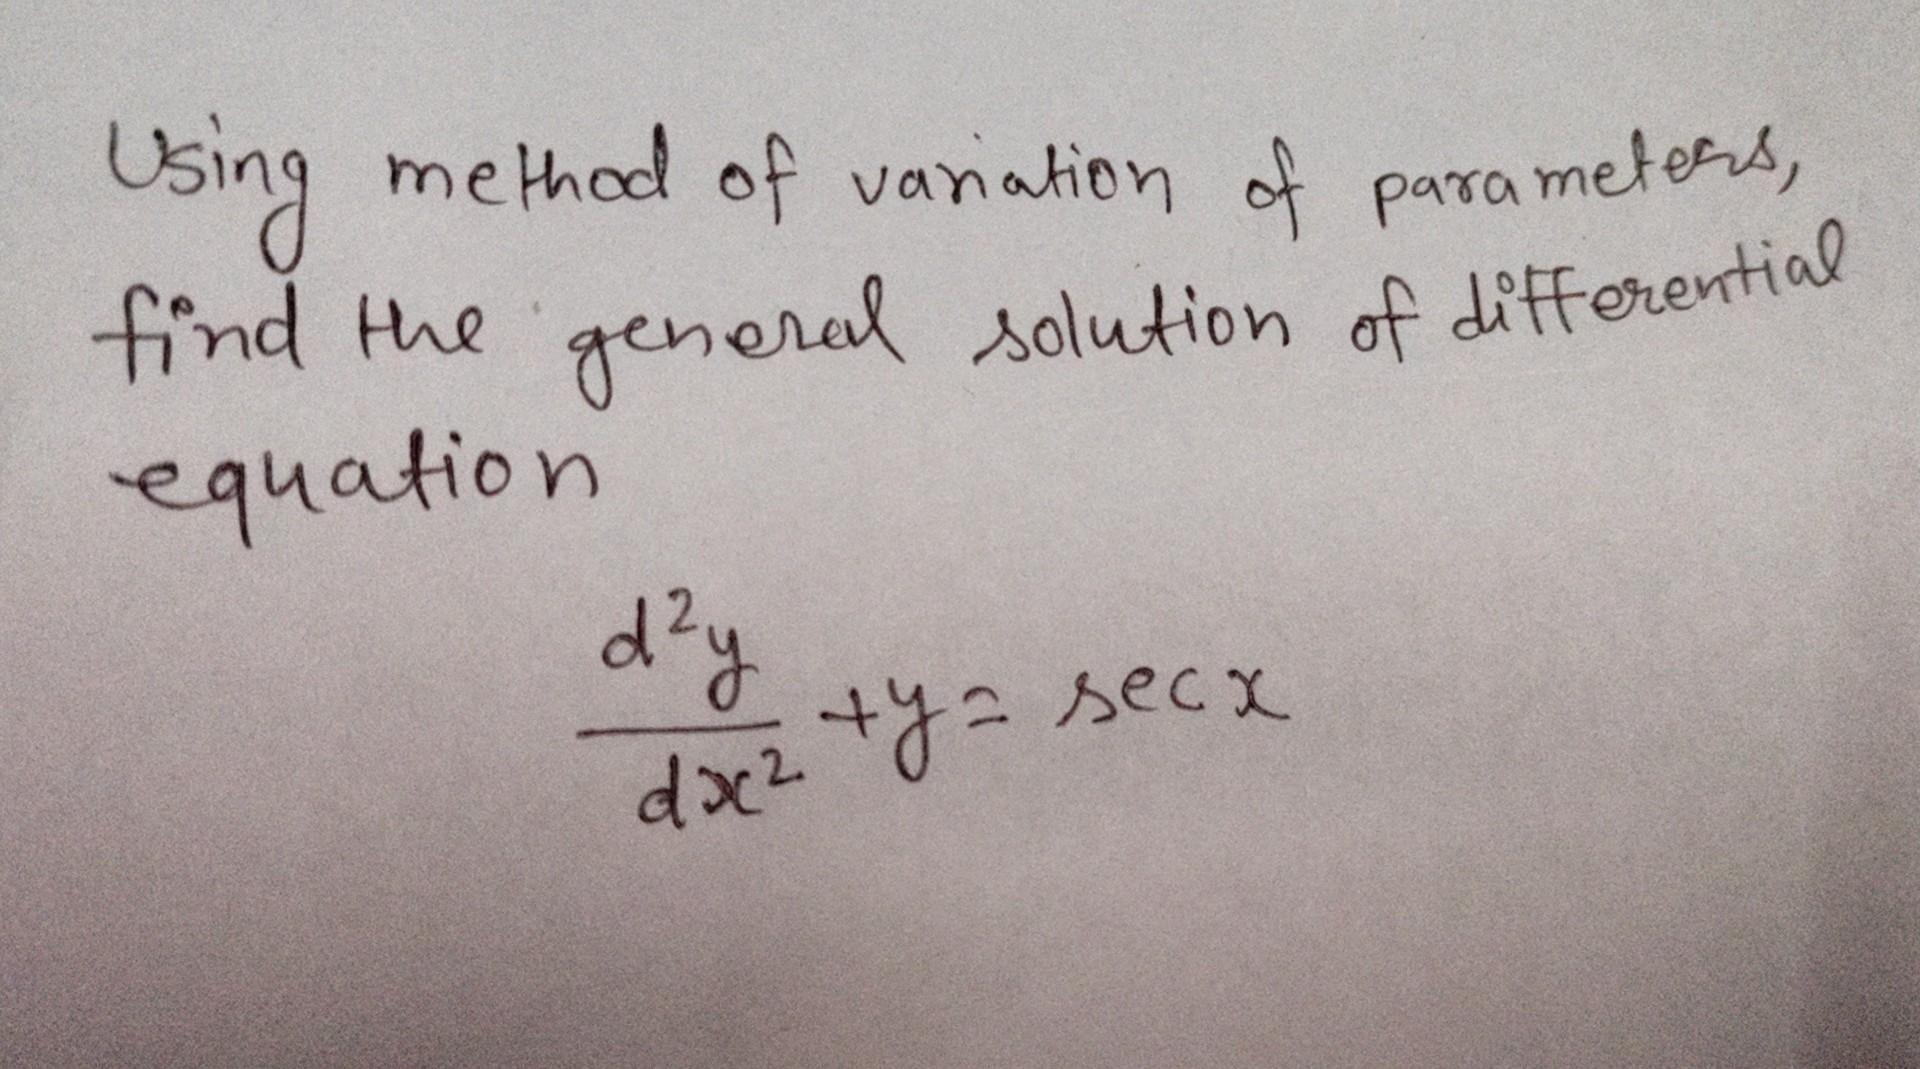 Using method of variation of parameters,
find the general solution of differential
equation
d²y/dx² + y = sec x